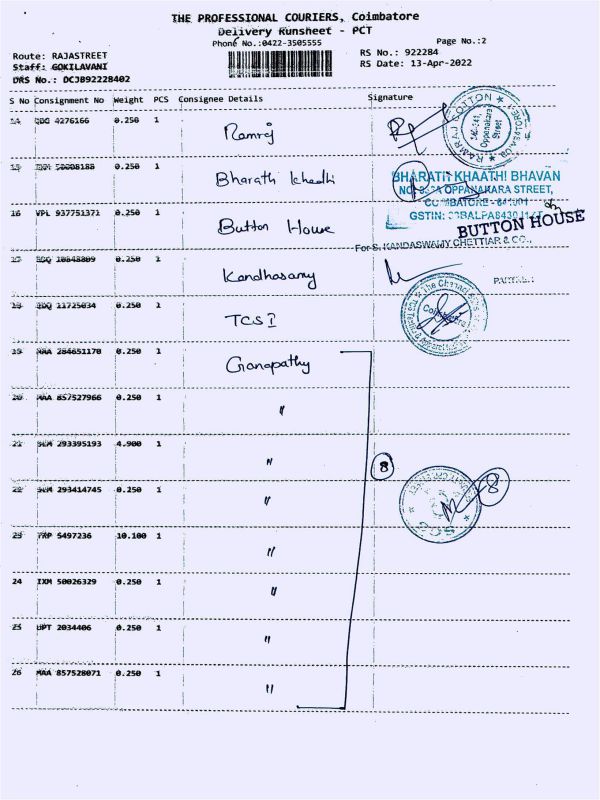 THE PROFESSIONAL COURIERS, Coimbatore
Delivery Runsheet - PCT
Phone No.:0422-3505555
Page No.:2
Route: RAJASTREET
RS No.: 922284
Staff: GOKILAVANI
RS Date: 13-Apr-2022
DRS No.: DCJB92228402
S No Consignment No Weight PCS Consignee Details Signature
14 4276166 0.250 1 Ramraj
RAMRAJ COTTON
Oppanakara Street
15 50008188 0.250 1 Bharath Khadhi
BHARATH KHAATHI BHAVAN
OPPANAKARA STREET,
COIMBATORE - 641001
GSTIN:
16 VPL 937751371 0.250 1 Button House
BUTTON HOUSE
For S. KANDASWAMY CHETTIAR & CO.,
17 10848809 0.250 1 Kandhasamy
18 BDQ 11725034 0.250 1 TCSI
19 MAA 284651170 0.250 1 Ganapathy
20 MAA 857527966 0.250 1 "
21 293395193 4.900 1 "
8
22 293414745 0.250 1 "
8
23 TRP 5497236 10.100 1 "
24 IXM 50026329 0.250 1 "
25 UPT 2034406 0.250 1 "
26 MAA 857528071 0.250 1 "